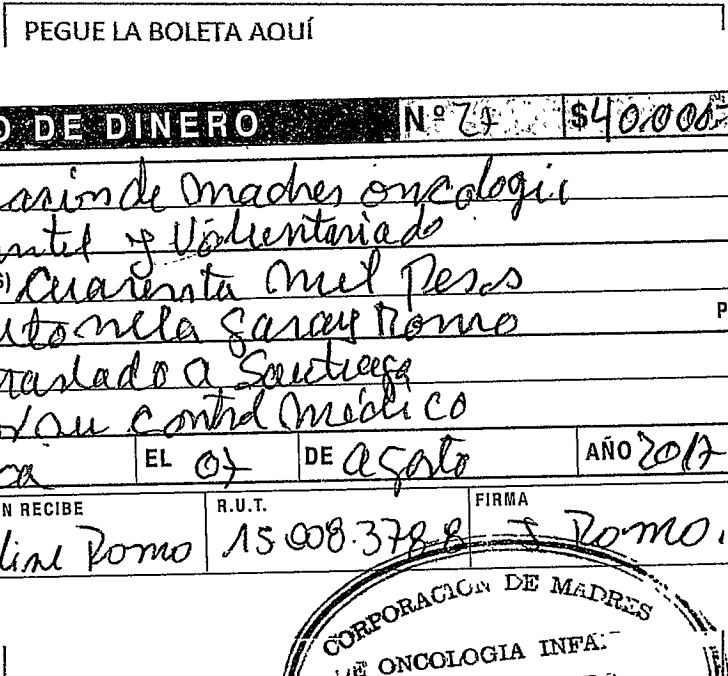 PEGUE LA BOLETA AQUÍ
O DE DINERO Nº 27 $40.000=
acion de madres oncologic
ntil y Voluntariado
S) Cuarenta mil Pesos
utonella Garay Romo P
raslado a Santiago
su control médico
EL 07 DE Agosto AÑO 2017
N RECIBE R.U.T. FIRMA
line Romo 15.008.378-8 J Romo.
CORPORACION DE MADRES
DE ONCOLOGIA INFA